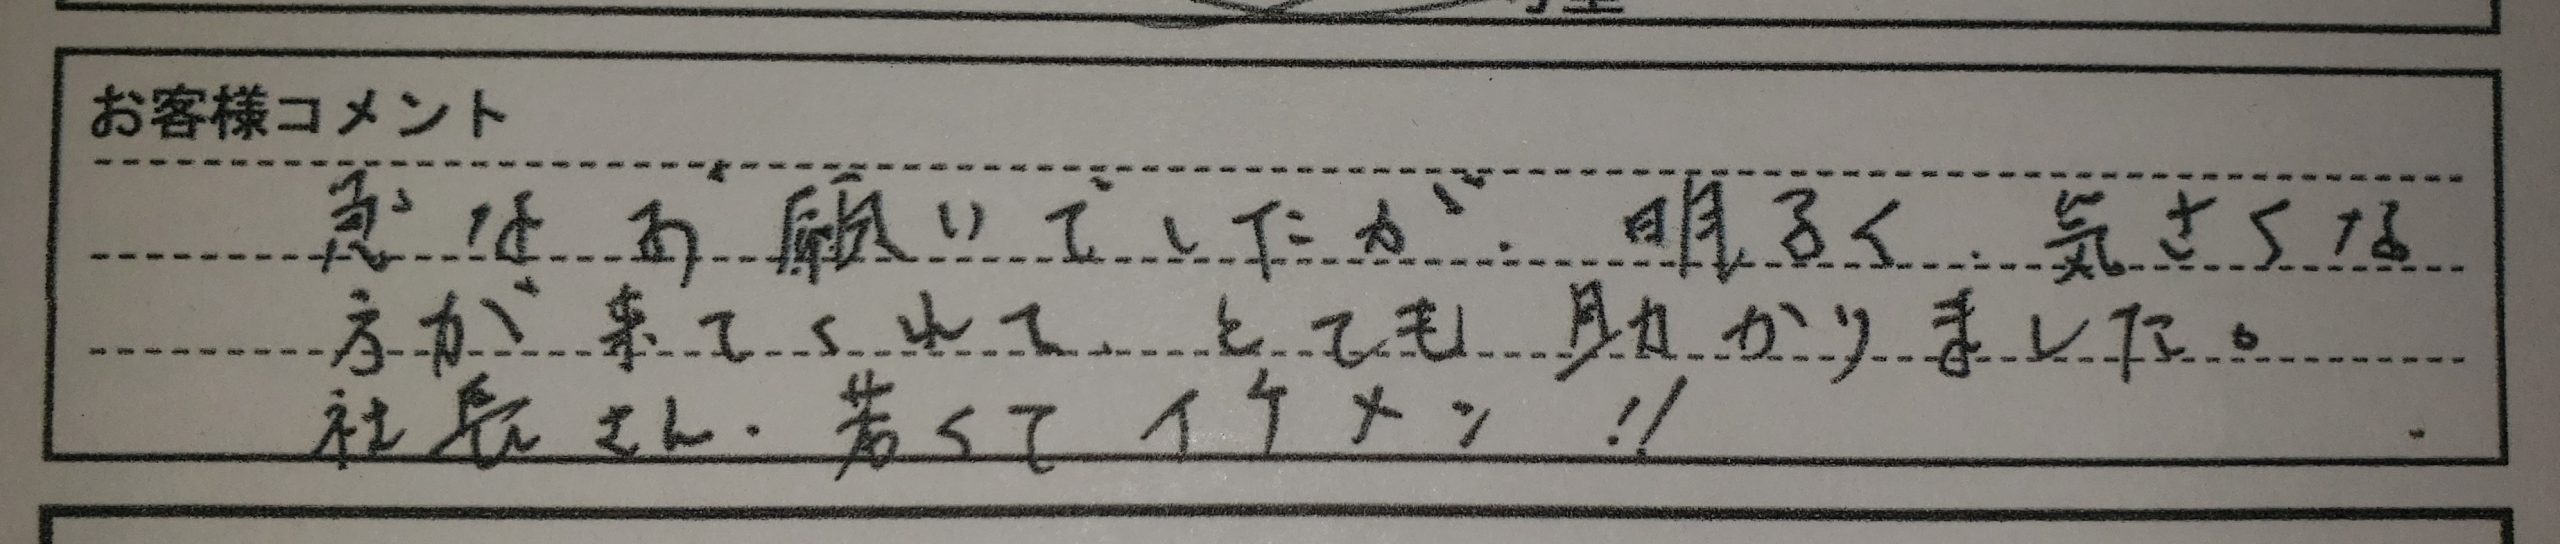 お客様コメント
急なお願いでしたが、明るく、気さくな
方が来てくれて、とても助かりました。
社長さん、若くてイケメン!!